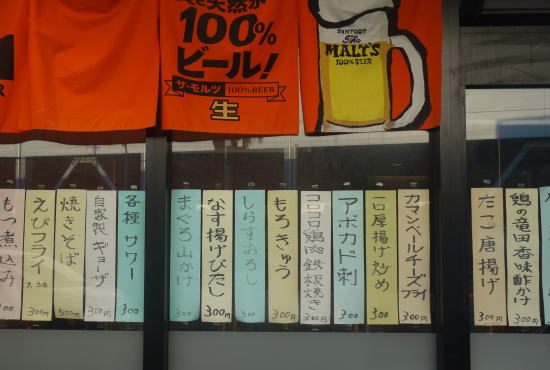 天然水
100%
ビール!
ザ・モルツ 100%BEER
生
SUNTORY
The
MALT'S
100%BEER
もつ煮込み
えびフライ 大3本 300円
焼きそば 500円
自家製 ギョーザ 300円
各種 サワー 300
まぐろ山かけ 300
なす揚げびたし 300円
しらすおろし 300
もろきゅう 300円
コロコロ鶏肉鉄板焼き 300円
アボカド刺 300
一口厚揚げ炒め 300
カマンベールチーズフライ 300円
たこ唐揚げ 300円
鶏の竜田香味酢かけ 300円